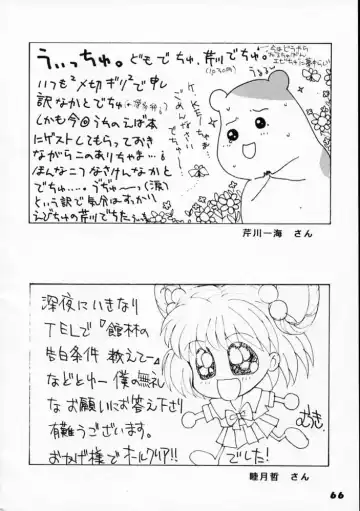 うぃっちゅ。どもでちゅ、芹川でちゅ。
いつも〆切ギリで申し
訳なかとでちゅ
しかも今回うちのえば本
にゲストしてもらっておき
ながらこのありちゃま…
ほんなこつなさけんなかと
でちゅ…。うぢゅ〜っ(涙)
という訳で気分はすっかり
えびちゅの芹川でちた
ごめんなさい
でちゅ〜!
うるる
芹川一海 さん
深夜にいきなり
TELで『館林の
告白条件 教えて〜』
などとゆー 僕の無礼
な お願いにお答え下さり
有難うございます。
おかげ様でオールクリア!!
でした!
むつき
睦月哲 さん
66